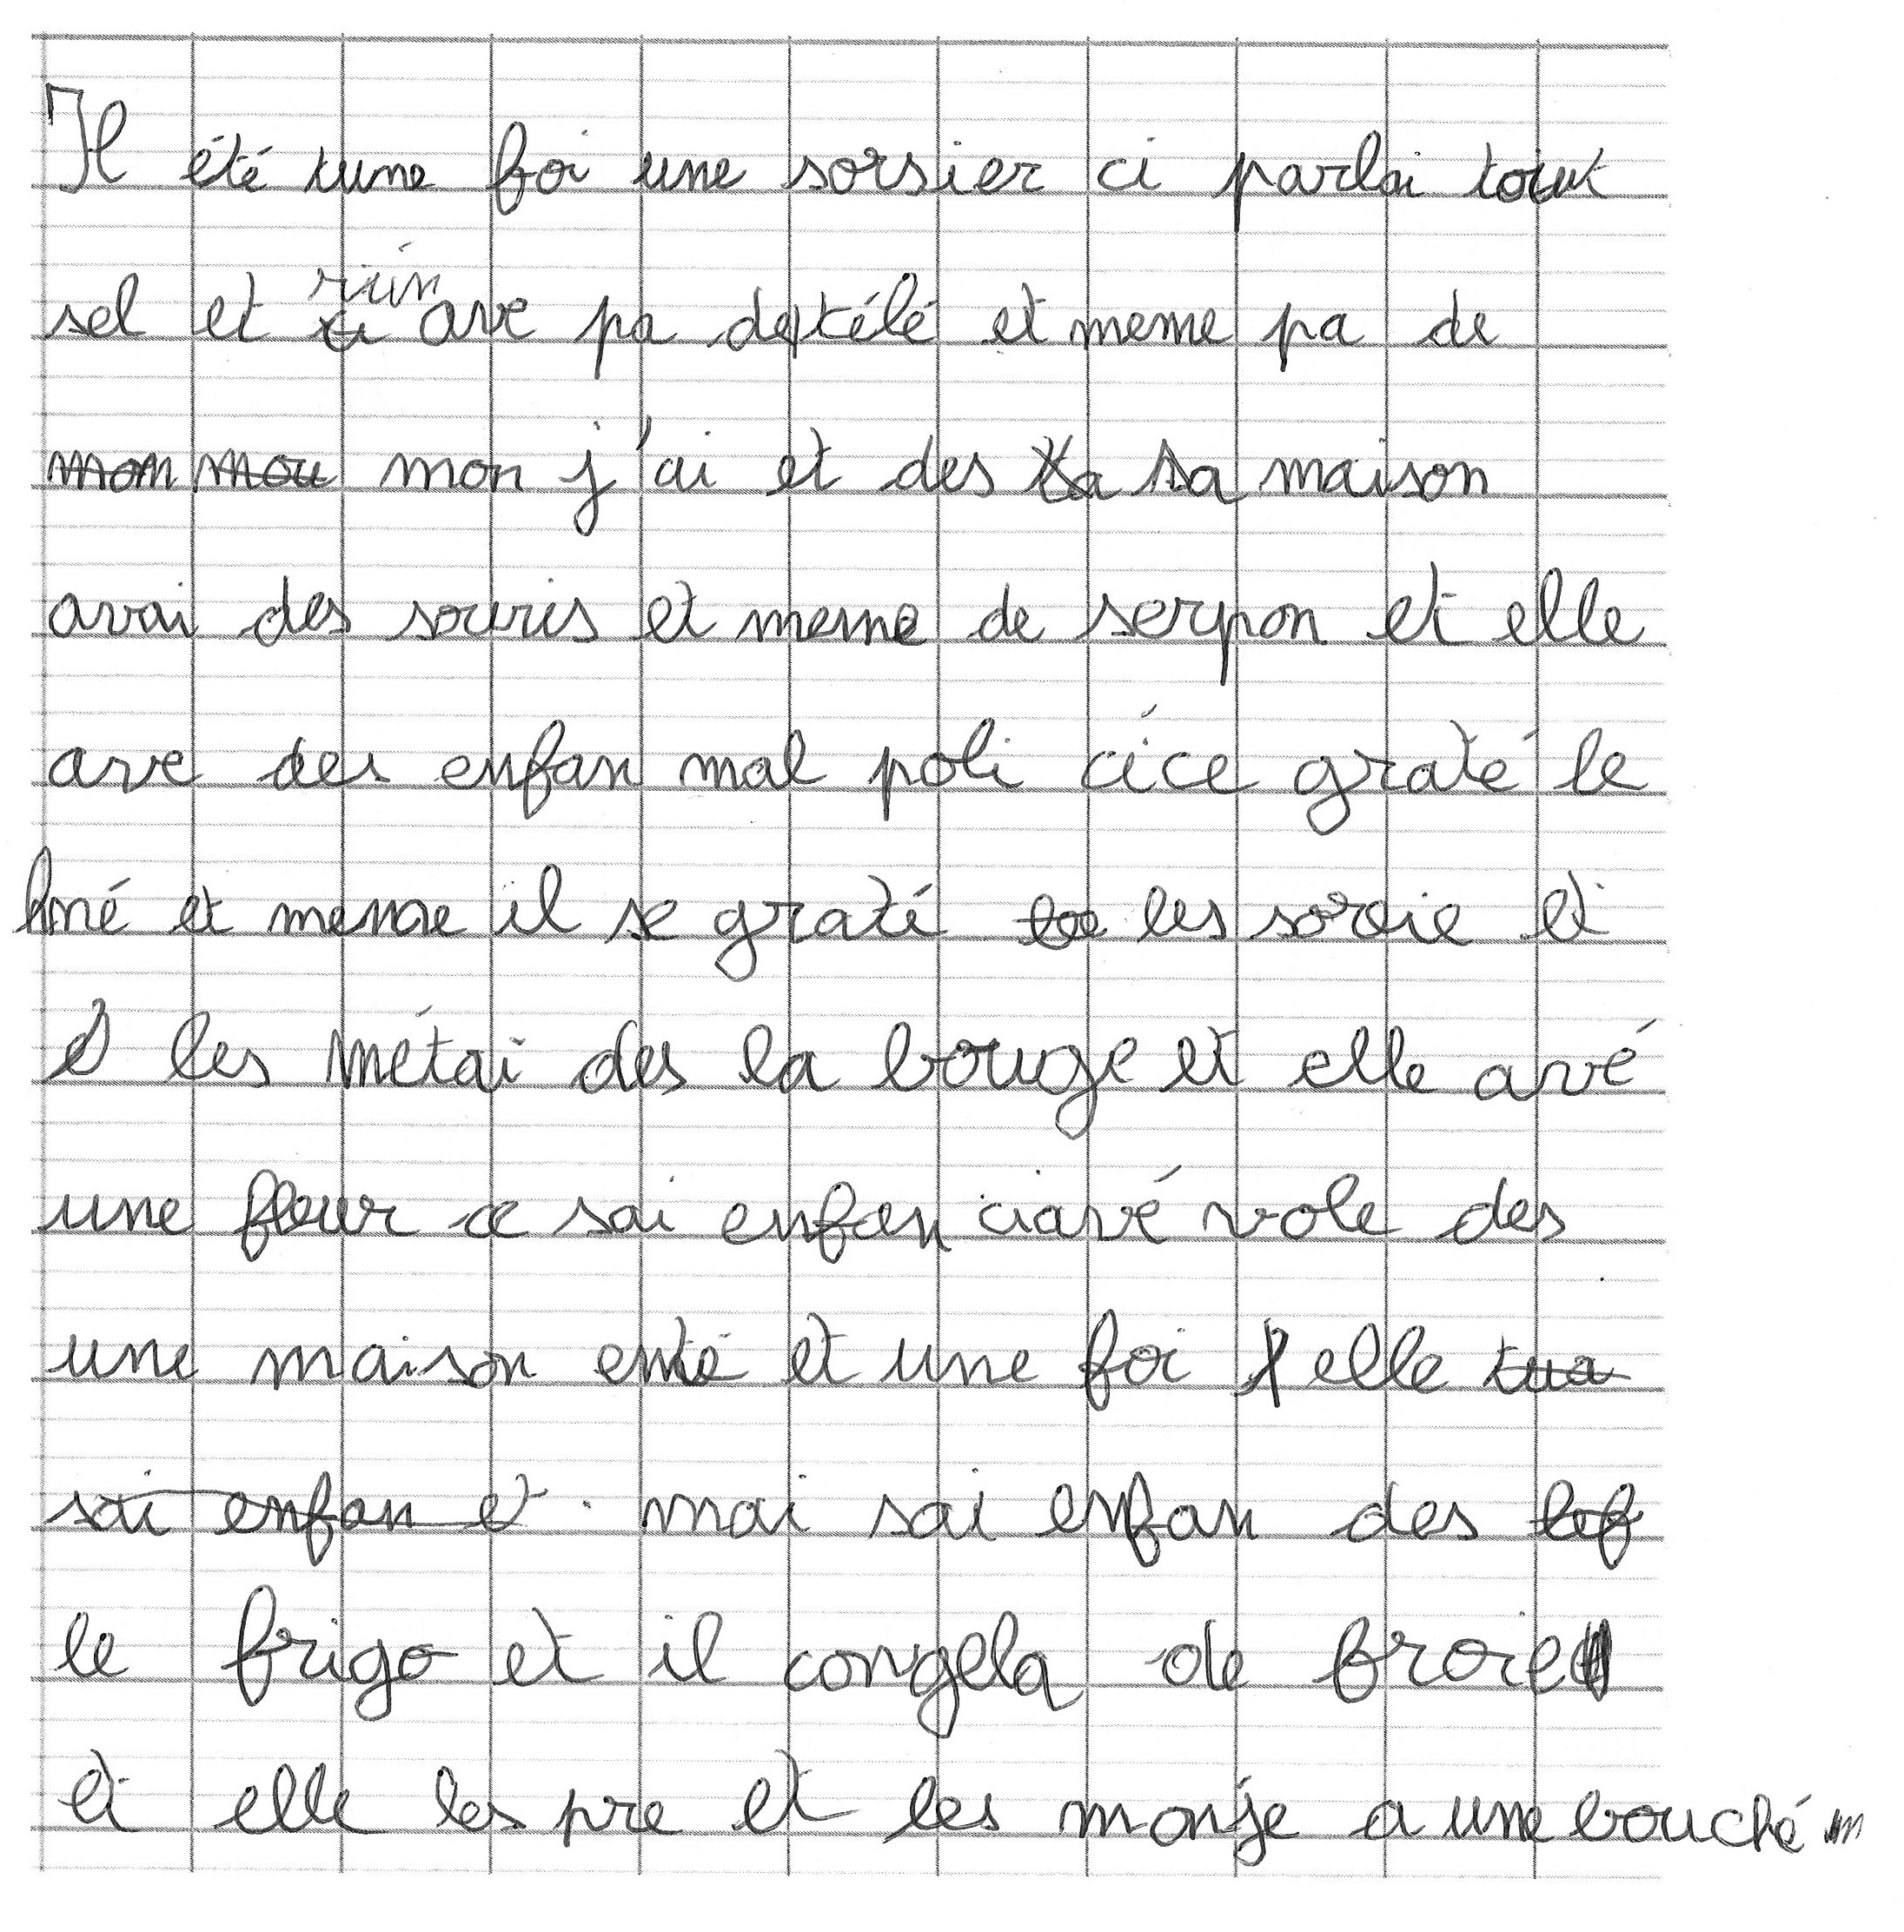 Il été tune foi une sorsier ci parlai tout
sel et riin ave pa de télé et meme pa de
mon mou mon j'ai et des sa maison
avai des souris et meme de serpon et elle
ave des enfan mal poli cice graté le
né et meme il se graté les sordie et
les métai des la bouge et elle avé
une fleur ce sai enfan ciavé vole des
une maison enté et une foi elle tua
sai enfan et mai sai enfan des
le frigo et il congela de froie
et elle les pre et les monje a une bouché